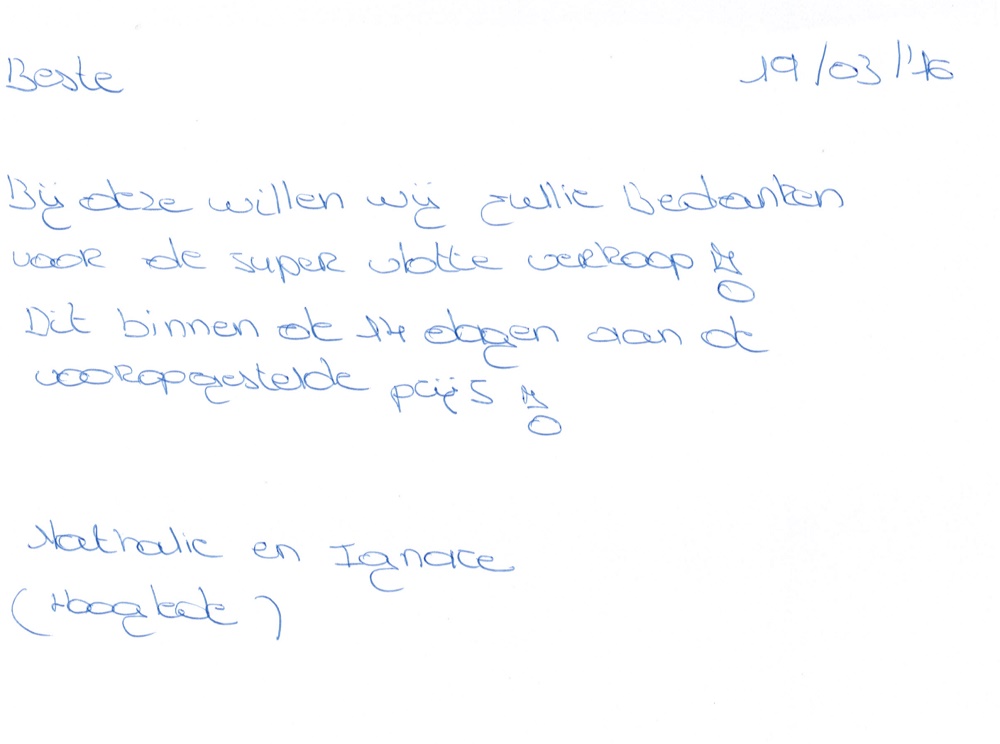 Beste 19/03/'16
Bij deze willen wij jullie bedanken
voor de super vlotte verkoop!
Dit binnen de 14 dagen aan de
vooropgestelde prijs!
Nathalie en Ignace
(Hoogkade)